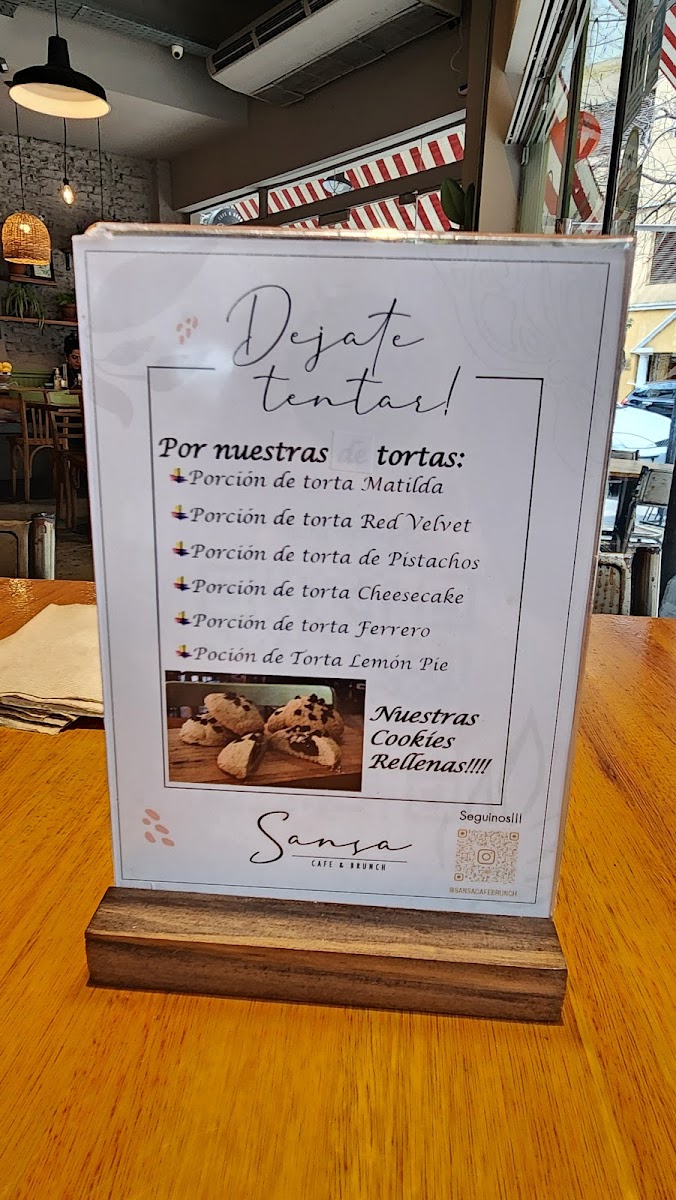 Dejate
tentar!
Por nuestras de tortas:
Porción de torta Matilda
Porción de torta Red Velvet
Porción de torta de Pistachos
Porción de torta Cheesecake
Porción de torta Ferrero
Poción de Torta Lemón Pie
Nuestras
Cookíes
Rellenas!!!!
Seguinos!!!
Sansa
CAFE & BRUNCH
@SANSACAFEBRUNCH